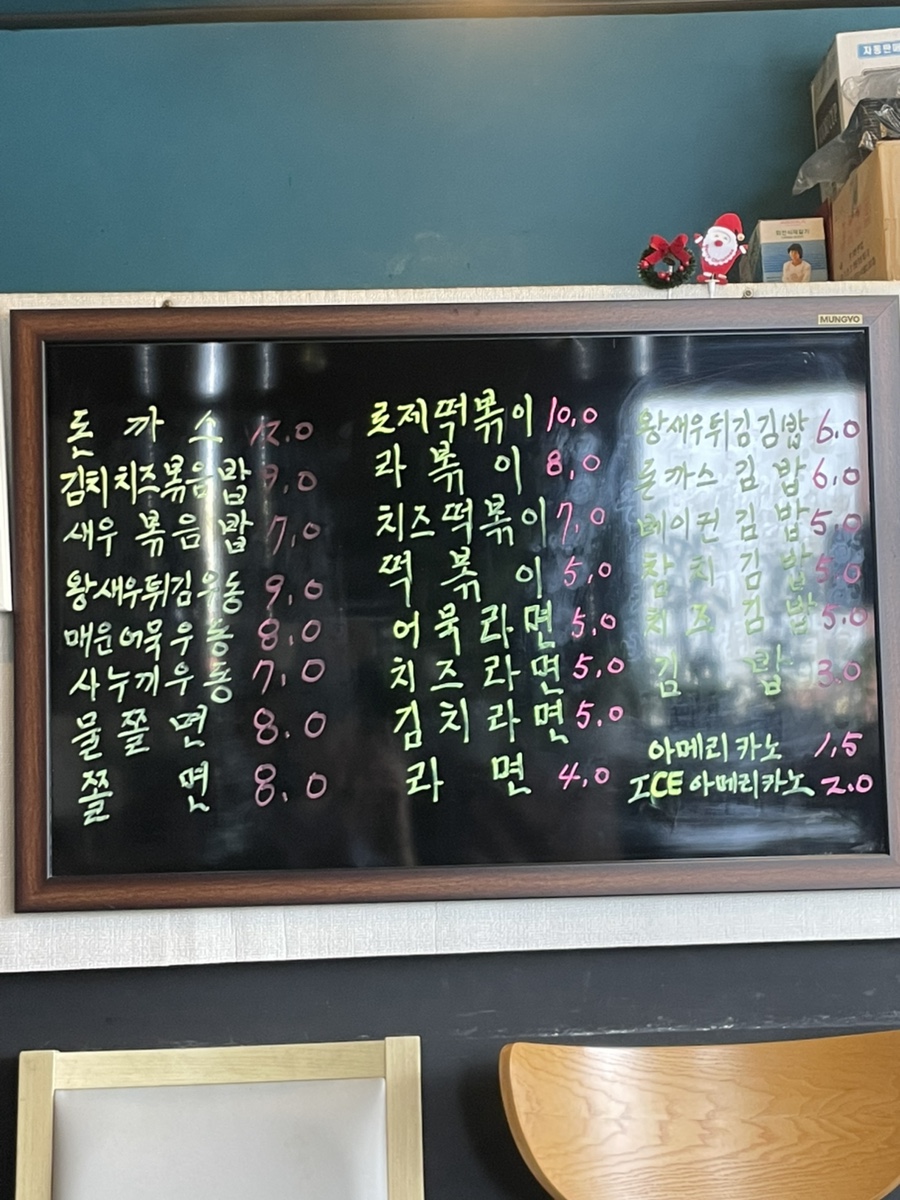 자동판매
MUNGYO
돈 까 스 12.0
김치치즈볶음밥 9.0
새우 볶음밥 7.0
왕새우튀김우동 9.0
매운어묵우동 8.0
사누끼우동 7.0
물쫄면 8.0
쫄 면 8.0
로제떡볶이 10.0
라 볶 이 8.0
치즈떡볶이 7.0
떡 볶 이 5.0
어묵라면 5.0
치즈라면 5.0
김치라면 5.0
라 면 4.0
왕새우튀김김밥 6.0
돈까스 김 밥 6.0
베이컨 김 밥 5.0
참 치 김 밥 5.0
치 즈 김 밥 5.0
김 밥 3.0
아메리카노 1.5
ICE 아메리카노 2.0